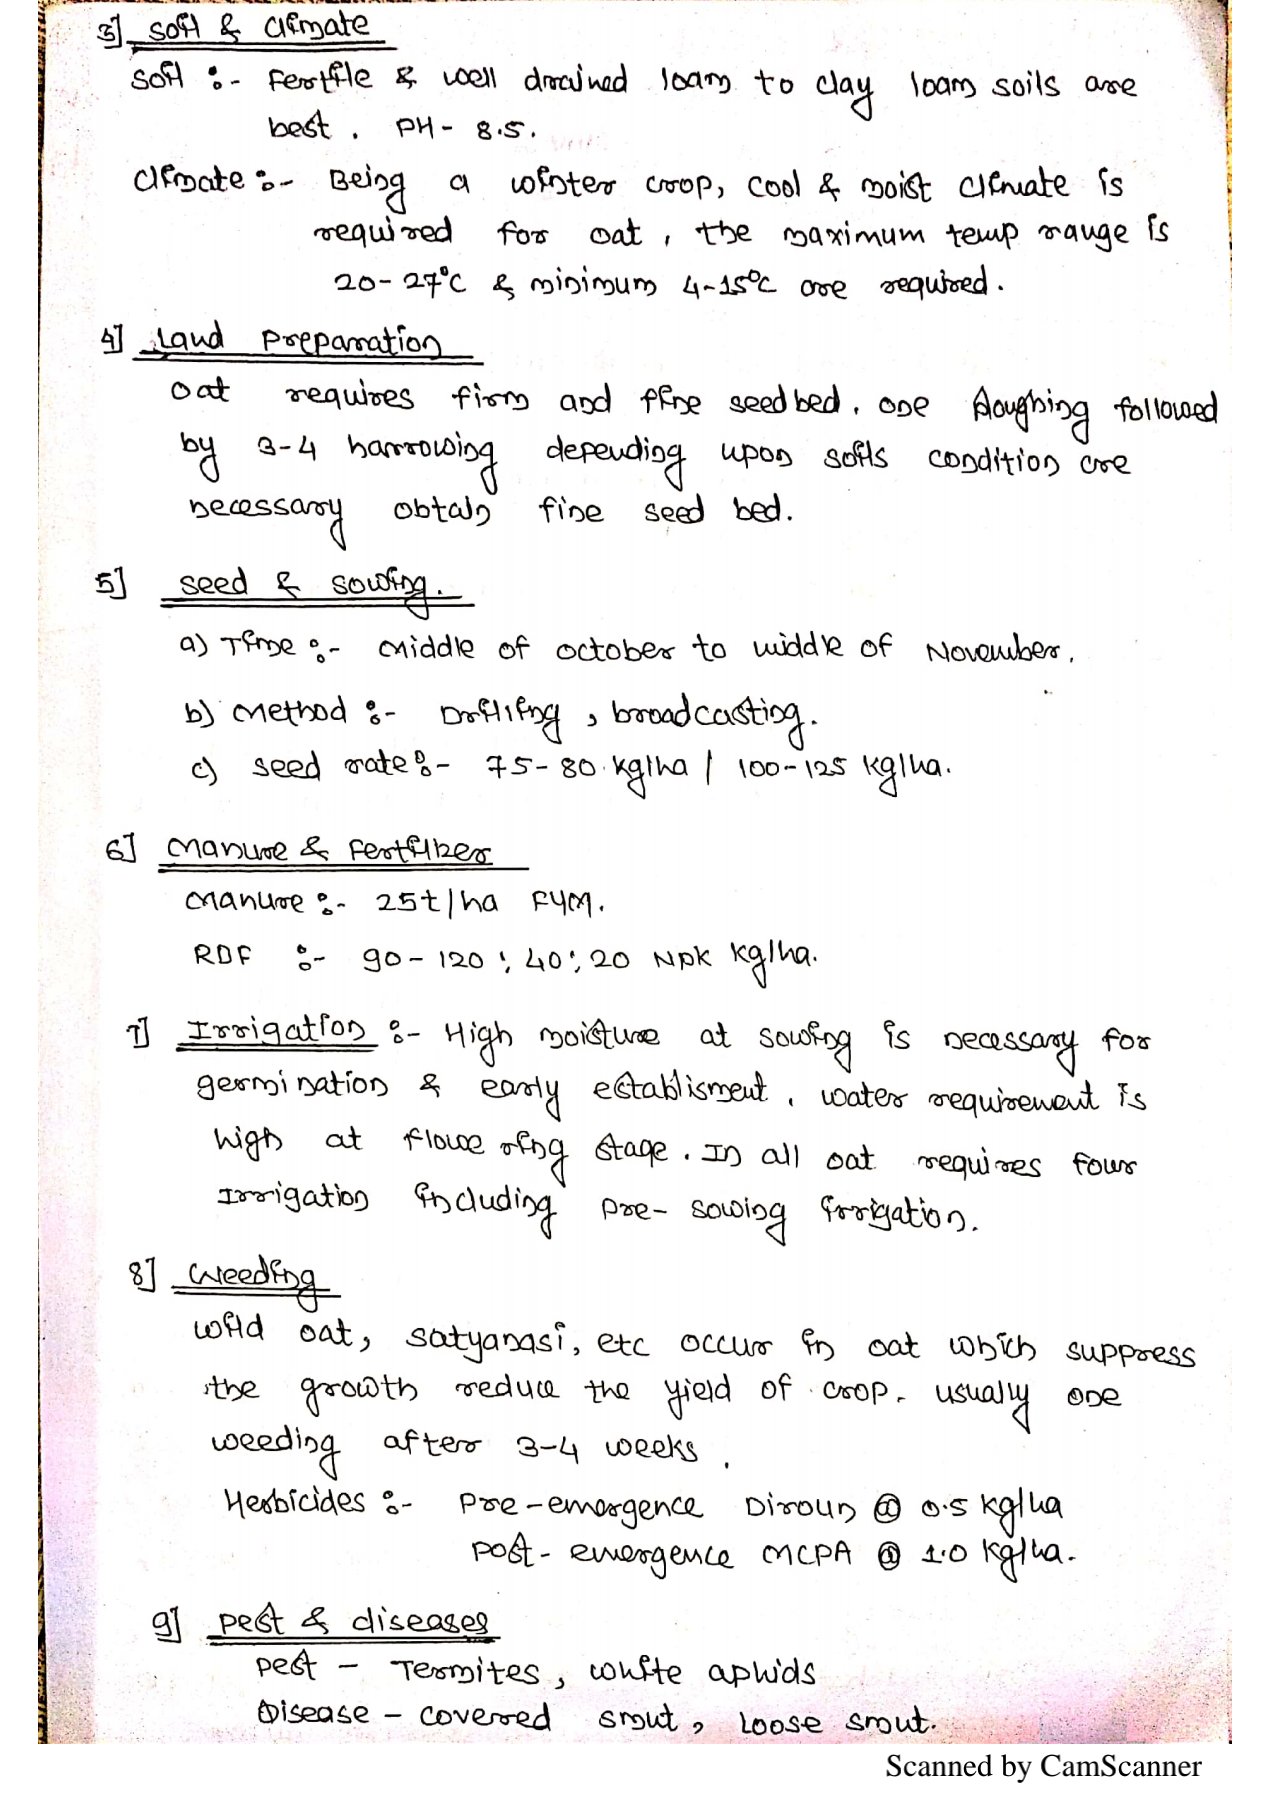 3] Soil & Climate
Soil :- Fertile & well drained loam to clay loam soils are
best. PH - 8.5.
Climate :- Being a winter crop, cool & moist climate is
required for oat, the maximum temp range is
20-27°C & minimum 4-15°C are required.
4] Land Preparation
Oat requires firm and fine seed bed. One ploughing followed
by 3-4 harrowing depending upon soils condition are
necessary obtain fine seed bed.
5] Seed & sowing.
a) Time :- Middle of October to middle of November.
b) Method :- Drilling, broadcasting.
c) seed rate :- 75-80 kg/ha / 100-125 kg/ha.
6] Manure & Fertilizer
Manure :- 25t/ha FYM.
RDF :- 90-120 : 40 : 20 NPK kg/ha.
7] Irrigation :- High moisture at sowing is necessary for
germination & early establisment. water requirement is
high at flowering stage. In all oat requires four
Irrigation including pre-sowing irrigation.
8] Weeding
Wild oat, satyanasi, etc occur in oat which suppress
the growth reduce the yield of crop. usually one
weeding after 3-4 weeks.
Herbicides :- Pre-emergence Diroun @ 0.5 kg/ha
Post-emergence MCPA @ 1.0 kg/ha.
9] Pest & diseases
Pest - Termites, white aphids
Disease - covered smut, Loose smut.
Scanned by CamScanner